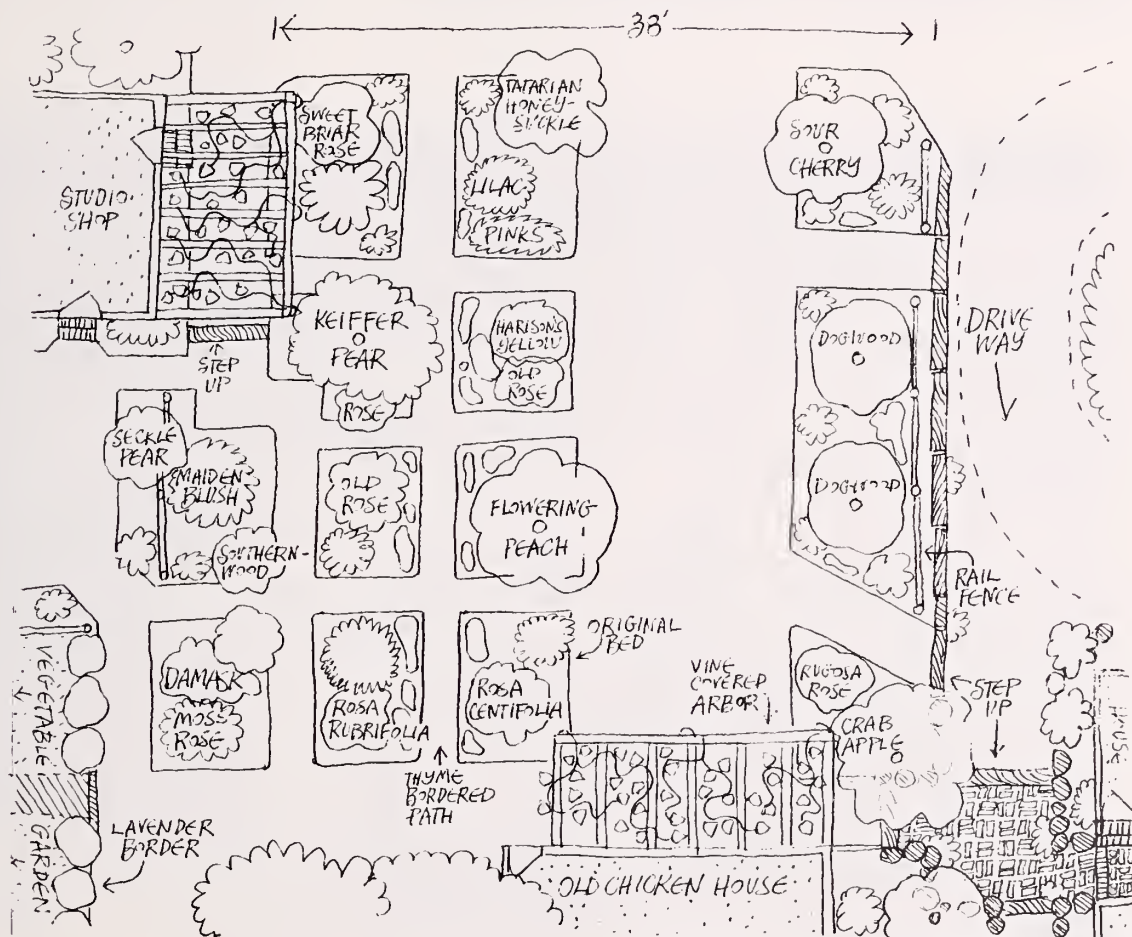 38'
SWEET
BRIAR
ROSE
TATARIAN
HONEY-
SUCKLE
SOUR
CHERRY
STUDIO
SHOP
LILAC
PINKS
KEIFFER
PEAR
ROSE
HARISON'S
YELLOW
OLD
ROSE
DOGWOOD
DRIVE
WAY
STEP
UP
SECKLE
PEAR
MAIDEN
BLUSH
SOUTHERN-
WOOD
OLD
ROSE
FLOWERING
PEACH
DOGWOOD
RAIL
FENCE
ORIGINAL
BED
DAMASK
MOSS
ROSE
ROSA
RUBRIFOLIA
ROSA
CENTIFOLIA
VINE
COVERED
ARBOR
RUGOSA
ROSE
CRAB
APPLE
STEP
UP
HOUSE
THYME
BORDERED
PATH
VEGETABLE GARDEN
LAVENDER
BORDER
OLD CHICKEN HOUSE